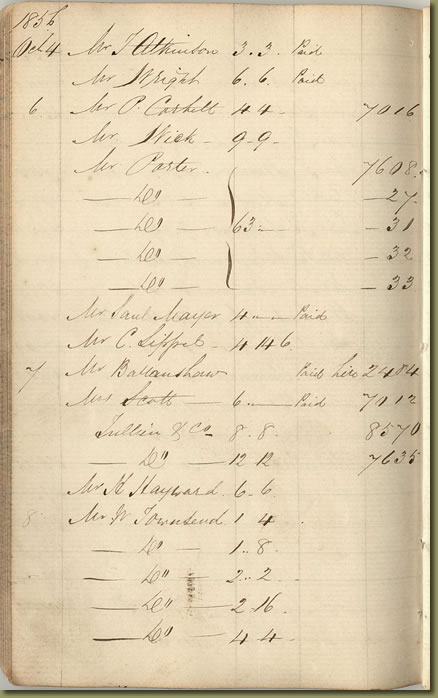 1856
Oct 4 Mr T Atkinson 3.3. Paid
Mr Wright 6.6. Paid
6 Mr P. Corbett 4 4 - 7016
Mr. Wick - 9-9-
Mr Porter. 7608.
— Do — — 27.
— Do — 63 — 31
— Do — — 32
— Do — — 33
Mr Saul Mayer 4 — — Paid
Mr C. 4 14 6
7 Mr Paid here 2484
Mrs Scott 6. — Paid 7012
Jullien & Co 8.8. 8570
— Do — 12 12 7635
Mr K Hayward 6-6.
8 Mr W Townsend 1 4 .
— Do — 1.. 8.
— Do — 2..2 -
— Do — 2-16.
— Do — 4 4 -